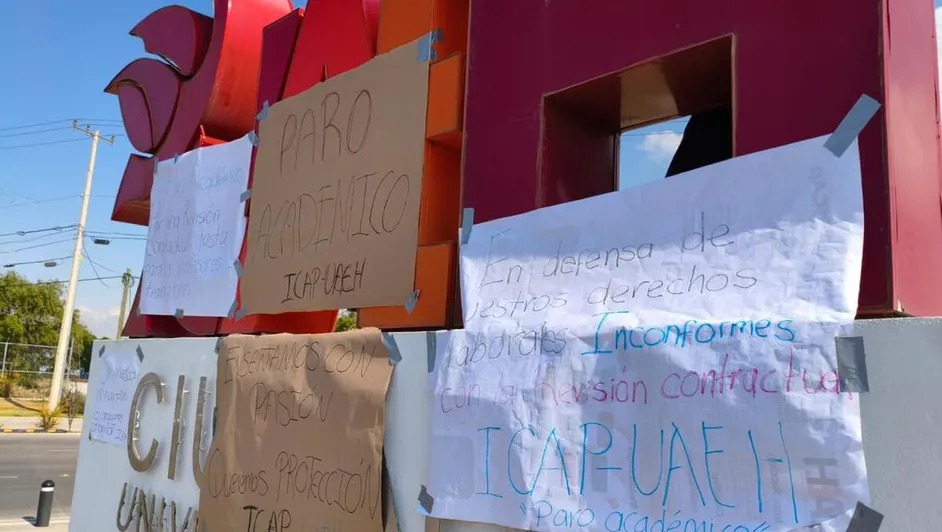 PARO
ACADEMICO
ICAP-UAEH
Académico
Revisión
contractual justa
para profesores
En defensa de
nuestros derechos
laborales Inconformes
con la Revisión contractual
ICAP-UAEH
"Paro académico
ENSEÑAMOS CON
PASIÓN
Queremos PROTECCIÓN
ICAP
CIU
UNIV